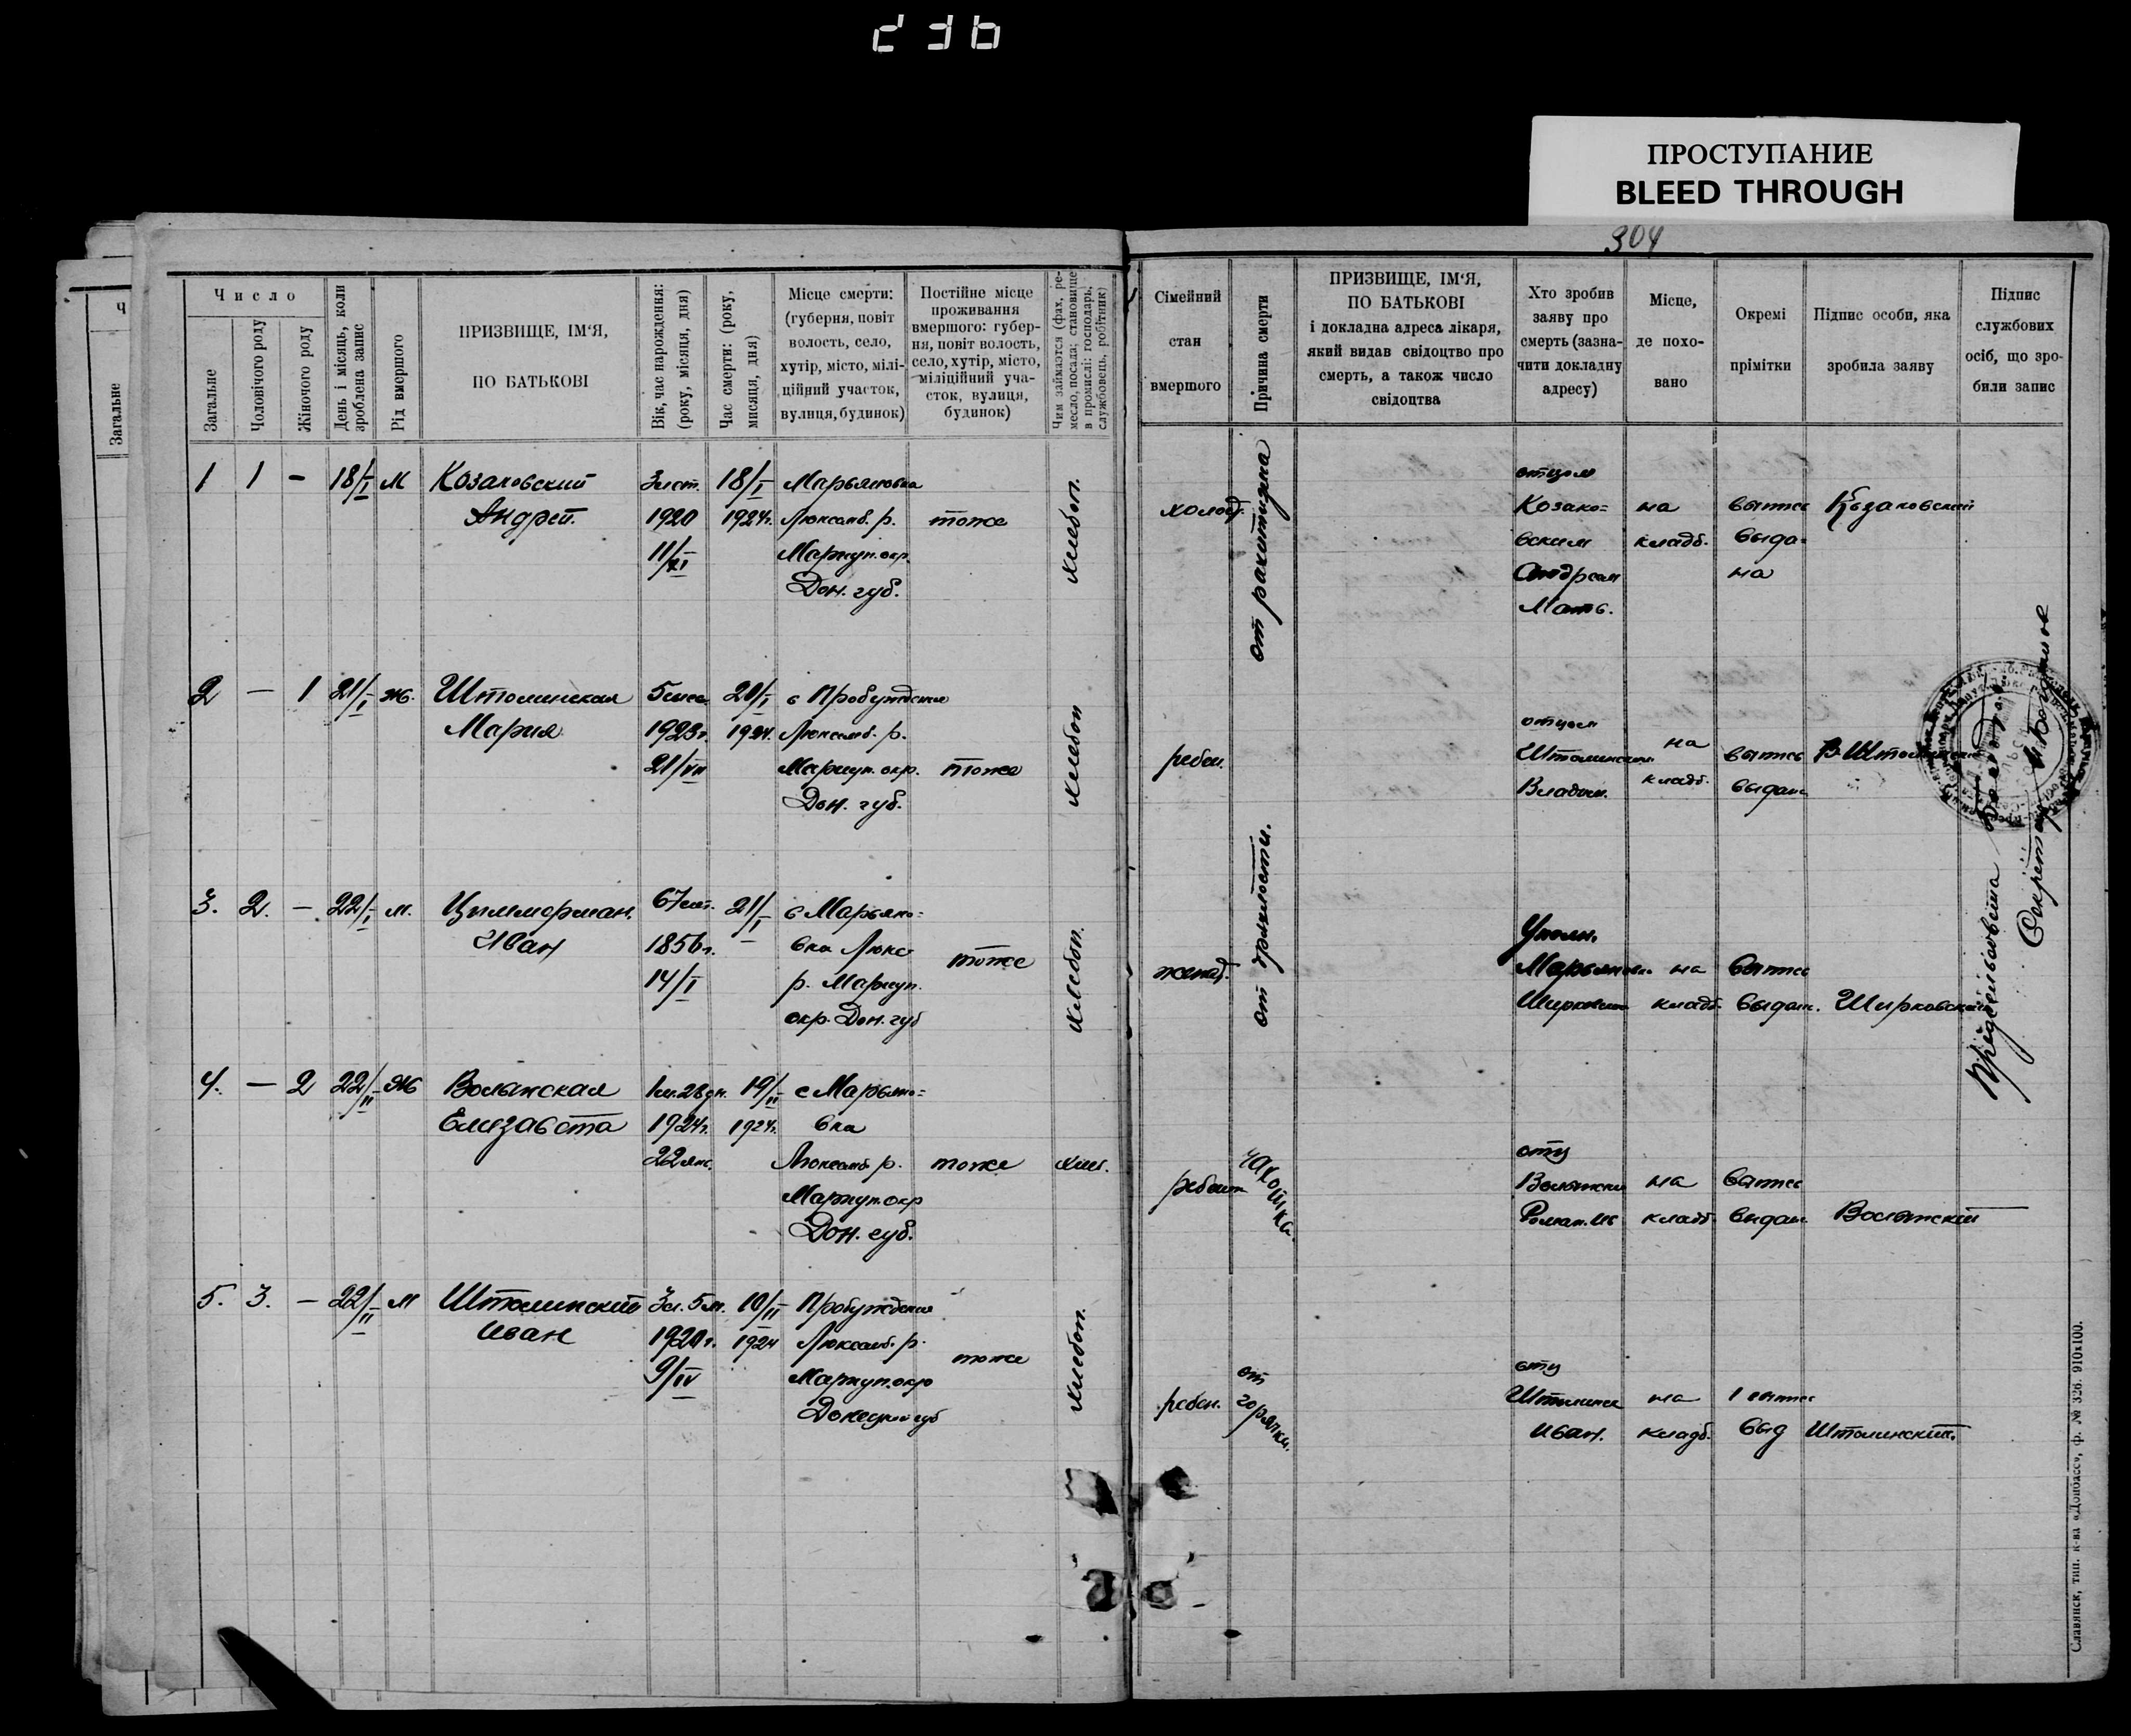 236
ПРОСТУПАНИЕ
BLEED THROUGH
304
Ч
Загальне
Число
Загальне
Чоловічого роду
Жіночого роду
День і місяць, коли
зроблена запис
Рід вмершого
ПРИЗВИЩЕ, ІМ‘Я,
ПО БАТЬКОВІ
Вік, час народження:
(року, місяця, дня)
Час смерти: (року,
мисяця, дня)
Місце смерти:
(губерня, повіт
волость, село,
хутір, місто, мілі-
ційний участок,
вулиця, будинок)
Постійне місце
проживання
вмершого: губер-
ня, повіт волость,
село, хутір, місто,
міліційний уча-
сток, вулиця,
будинок)
Чим займается (фах, ре-
месло, посада; становище
в промислі: господарь,
службовець, робітник)
Сімейний
стан
вмершого
Причина смерти
ПРИЗВИЩЕ, ІМ‘Я,
ПО БАТЬКОВІ
і докладна адреса лікаря,
який видав свідоцтво про
смерть, а також число
свідоцтва
Хто зробив
заяву про
смерть (зазна-
чити докладну
адресу)
Місце,
де похо-
вано
Окремі
прімітки
Підпис особи, яка
зробила заяву
Підпис
службових
осіб, що зро-
били запис
1 1 - 18/I м Козаковский
Андрей.
1920
11/XI
18/I
1924г.
Марьяновка
Люксемб. р.
Мариуп. окр.
Дон. губ.
тоже
хлебоп.
холост.
от рахитизма
отцом
Козако=
вским
Андреем
Матв.
на
кладб.
выпис
выда-
на
Козаковский
2 — 1 21/I ж. Штолинская
Мария
5 мес.
1923г.
21/VII
20/I
1924.
с Пробуждение
Люксемб. р.
Мариуп. окр.
Дон. губ.
тоже
хлебоп
ребен.
отцом
Штолинским
Владим.
на
кладб.
выпис
выдан
В Штолинский
3. 2. — 22/I м. Циммерман.
Иван
67 лет.
1856г.
14/I
21/I
с Марьяно=
вка Люкс
р. Мариуп.
окр. Дон. губ
тоже
хлебоп.
женат.
от дряхлости.
Уполн.
Марьяновк.
Ширковским
на
кладб.
выпис
выдан.
Ширковский
4. — 2 22/II ж Волынская
Елизавета
1 м. 28 дн.
1924г.
22 янв.
19/II
1924г.
с Марьяно=
вка
Люксемб р.
Мариуп. окр
Дон. губ.
тоже
хлеб.
ребенк
чахотка.
отц
Волынский
Роман. Ив
на
кладб.
выпис
выдан.
Волынский
5. 3. — 22/II м Штолинский
Иван
3 г. 5 м.
1920г.
9/IV
10/II
1924
Пробуждение
Люксемб. р.
Мариуп. окр
Донецкой губ
тоже
хлебоп.
ребен.
от
горячки.
отц
Штолинск
Иван.
на
кладб.
1 выпис
выд
Штолинский.
Секретарь
Славянск, тип. к-ва «Донбасс», ф. № 326. 910x100.